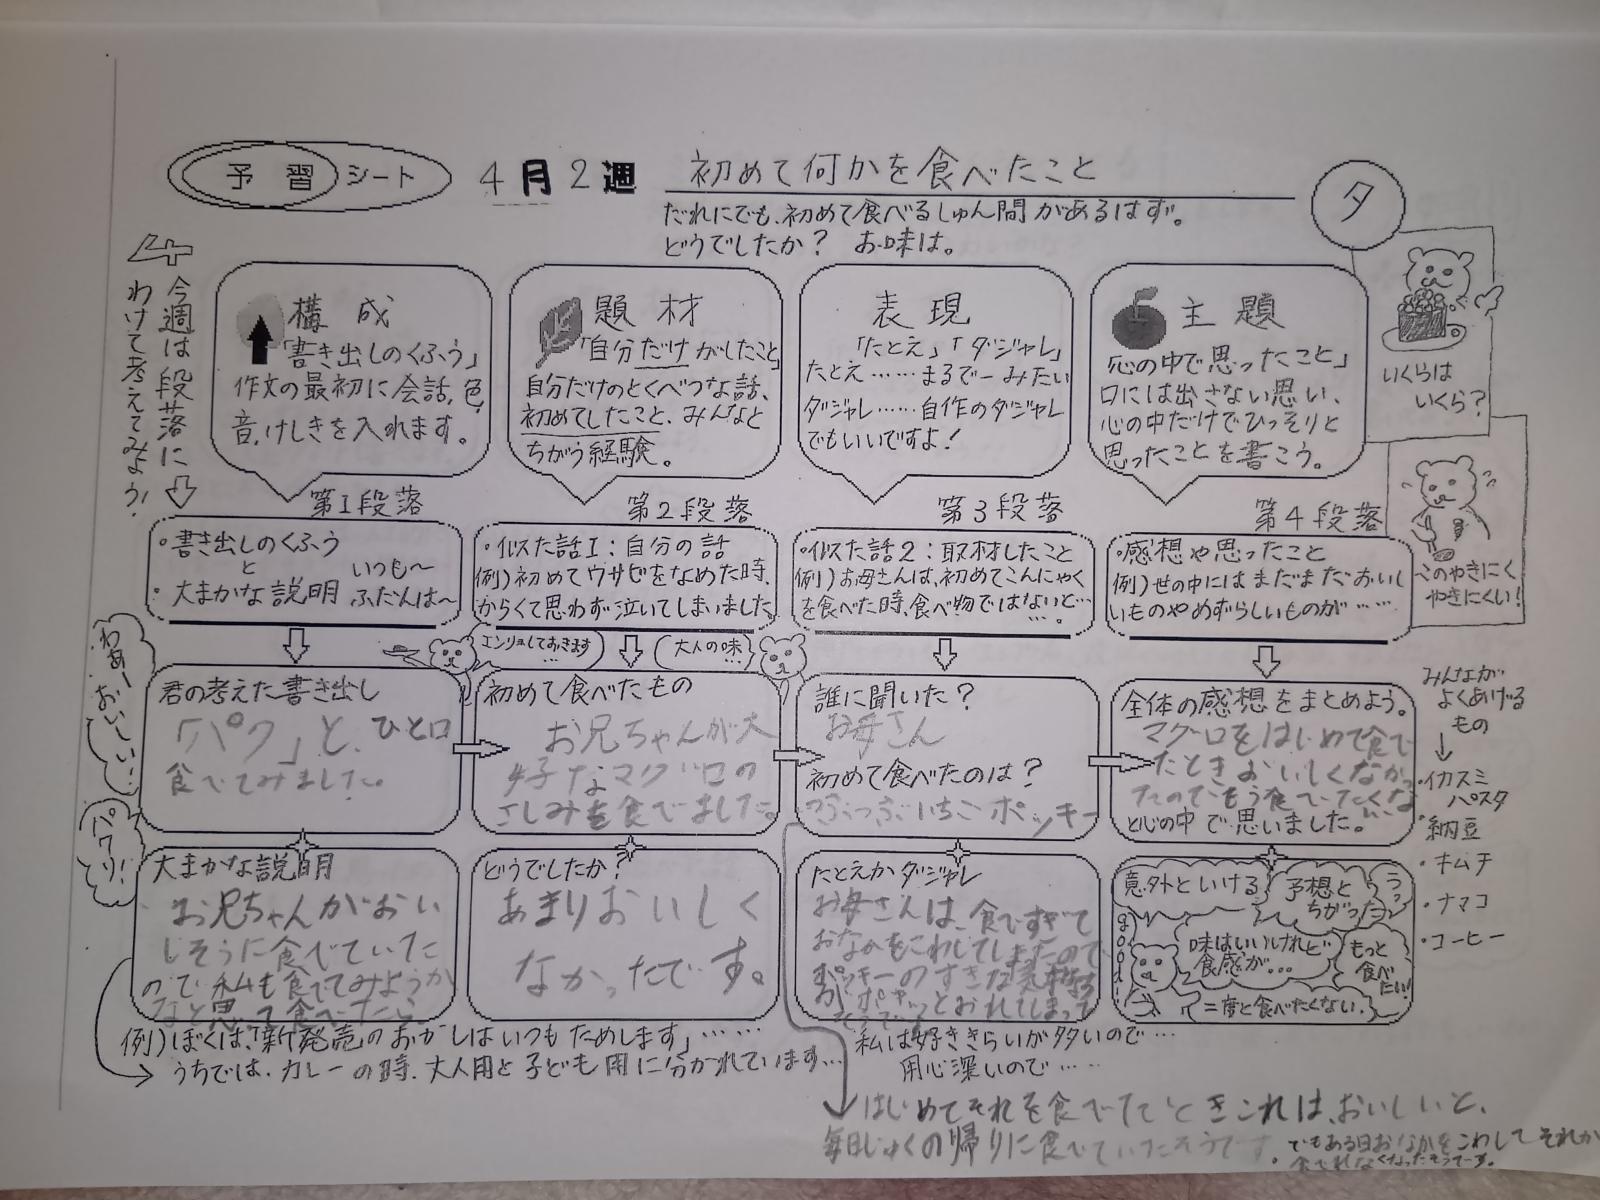 予習シート 4月2週 初めて何かを食べたこと タ
だれにでも、初めて食べるしゅん間があるはず。
どうでしたか? お味は。
今週は段落に
わけて考えてみよう!
構成
「書き出しのくふう」
作文の最初に会話、色、
音、けしきを入れます。
題材
「自分だけがしたこと」
自分だけのとくべつな話、
初めてしたこと、みんなと
ちがう経験。
表現
「たとえ」「ダジャレ」
たとえ……まるで〜みたい
ダジャレ……自作のダジャレ
でもいいですよ!
主題
「心の中で思ったこと」
口には出さない思い、
心の中だけでひっそりと
思ったことを書こう。
いくらは
いくら?
このやきにく
やきにくい!
第1段落
・書き出しのくふう
と
・大まかな説明 いつも〜
ふだんは〜
第2段落
・似た話1:自分の話
例)初めてワサビをなめた時、
からくて思わず泣いてしまいました。
第3段落
・似た話2:取材したこと
例)お母さんは、初めてこんにゃく
を食べた時、食べ物ではないと…
…。
第4段落
・感想や思ったこと
例)世の中にはまだまだおいし
いものやめずらしいものが……
わあーおいしい!
パクリ!
エンリョしておきます…
大人の味…
君の考えた書き出し
「パク」と、ひと口
食べてみました。
初めて食べたもの
お兄ちゃんが大
好きなマグロの
さしみを食べました。
誰に聞いた?
お母さん
初めて食べたのは?
つぶつぶいちごポッキー
全体の感想をまとめよう。
マグロをはじめて食べ
たときおいしくなかっ
たのでもう食べたくな
い
と心の中で思いました。
みんなが
よくあげる
もの
・イカスミ
パスタ
・納豆
・キムチ
・ナマコ
・コーヒー
大まかな説明
お兄ちゃんがおい
しそうに食べていた
ので私も食べてみようか
なと思って食べたら
どうでしたか?
あまりおいしく
なかったです。
たとえかダジャレ
お母さんは、食べすぎて
おなかをこわしてしまったので
ポッキーのすきな気持ち
が ポキッとおれてしまって
そうです
意外といける
予想と
ちがった
うっ
味はいいけれど
食感が…
もっと
食べ
たい!
二度と食べたくない。
例)ぼくは、「新発売のおかしはいつもためします」……
うちでは、カレーの時、大人用と子ども用に分かれています…
私は好ききらいが多いので…
用心深いので……
はじめてそれを食べたときこれは、おいしいと、
毎日じゅくの帰りに食べていたそうです。でもある日おなかをこわしてそれか
食べれなくなったそうです。